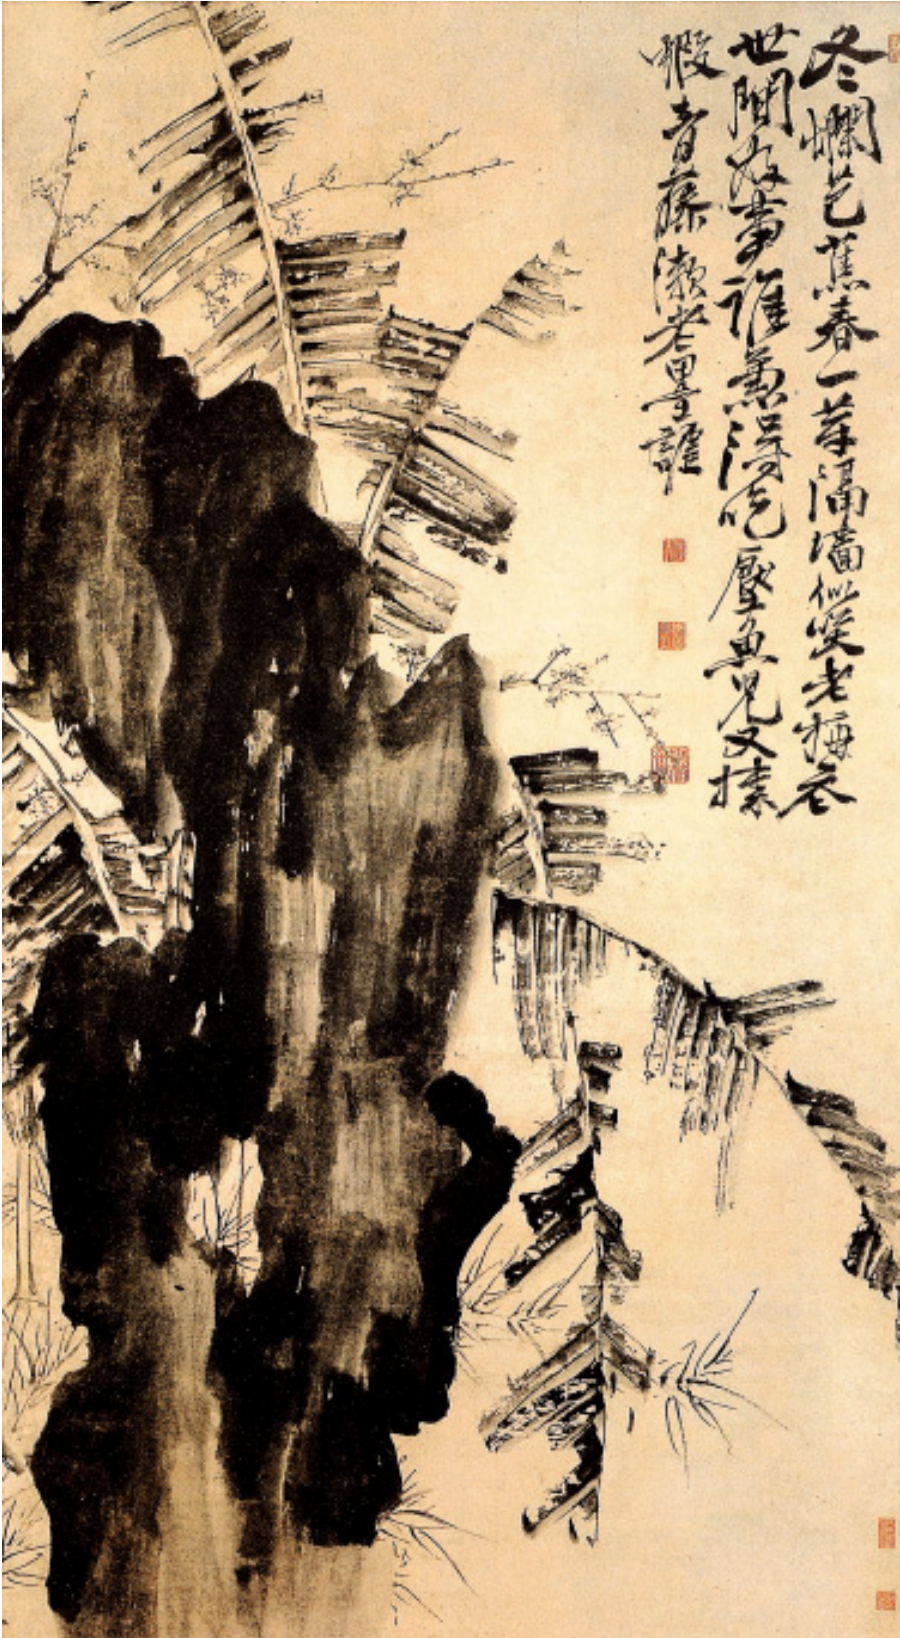 冬爛芭蕉春一芽隔墻似笑老梅花
世間好事誰兼得吃厭魚兒又揀
蝦青藤漱老墨謔